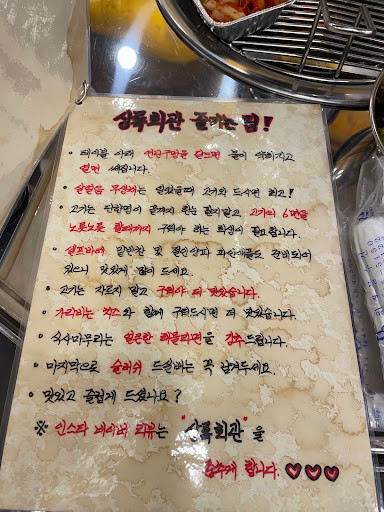 상록회관 즐기는 팁!
• 테이블 아래 전원구멍을 닫으면 불이 약해지고
열면 쎄집니다.
• 살얼음 무생채는 얼었을때 고기와 드시면 최고!
• 고기는 단면이 굽지 말고 고기의 6면을
노릇노릇 할때까지 구워야 하는 희생이 필요합니다.
• 셀프바에 밑반찬 및 파인애플도 준비되어
있으니 맛있게 많이 드세요.
• 고기는 자르지 말고 구워야 더 맛있습니다.
• 가리비는 치즈와 함께 구워드시면 더 맛있습니다.
• 식사마무리는 얼큰한 해물라면을 강추드립니다.
• 마지막으로 슬러쉬 드실배는 꼭 남겨두세요.
• 맛있고 즐겁게 드셨나요?
※ 인스타 네이버 리뷰는 "상록회관"을
춤추게 합니다. ♡♡♡